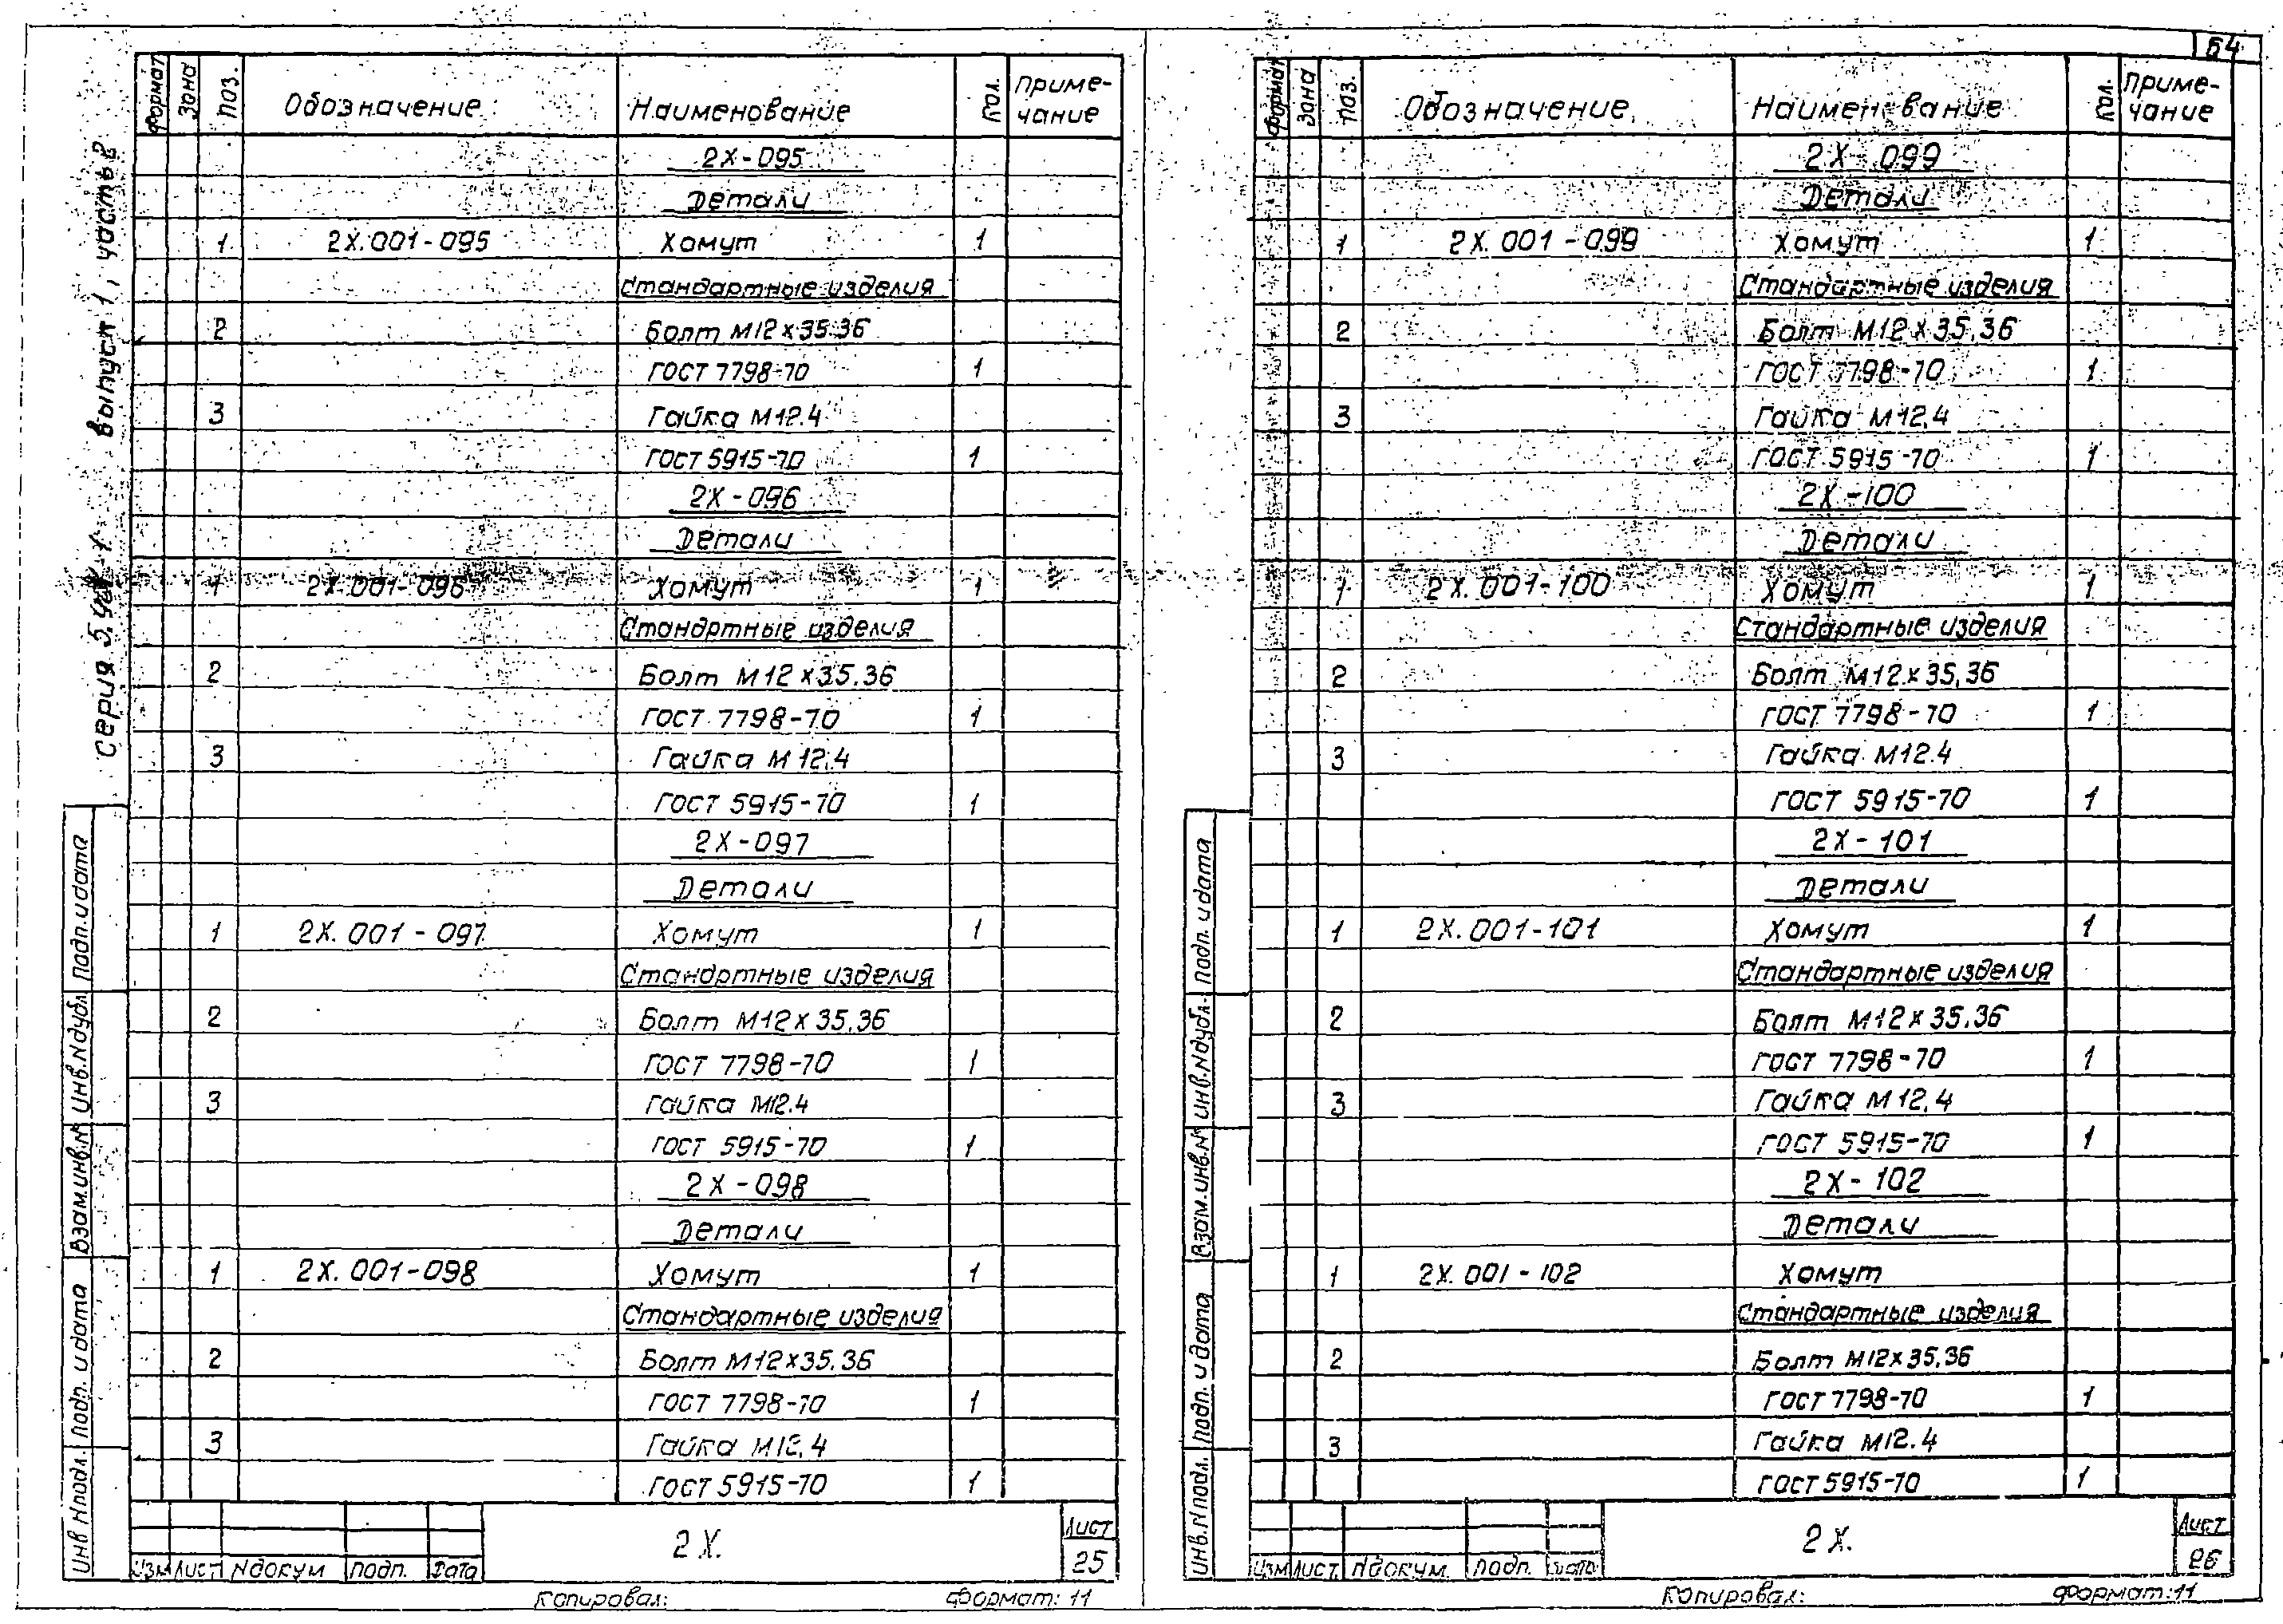 64
Серия 5.904-1 выпуск 1, часть 2
Формат Зона Поз. Обозначение Наименование Кол. Приме-
чание
2Х-095
Детали
1 2Х.001-095 Хомут 1
Стандартные изделия
2 Болт М12х35.36
ГОСТ 7798-70 1
3 Гайка М12.4
ГОСТ 5915-70 1
2Х-096
Детали
1 2Х.001-096 Хомут 1
Стандртные изделия
2 Болт М12х35.36
ГОСТ 7798-70 1
3 Гайка М12.4
ГОСТ 5915-70 1
2Х-097
Детали
1 2Х.001-097 Хомут 1
Стандртные изделия
2 Болт М12х35.36
ГОСТ 7798-70 1
3 Гайка М12.4
ГОСТ 5915-70 1
2Х-098
Детали
1 2Х.001-098 Хомут 1
Стандартные изделия
2 Болт М12х35.36
ГОСТ 7798-70 1
3 Гайка М12.4
ГОСТ 5915-70 1
Инв N подл. Подп. и дата Взам.инв.N Инв.N дубл. Подп. и дата
Изм Лист N докум Подп. Дата
2Х.
Лист
25
Копировал: Формат: 11
Формат Зона Поз. Обозначение Наименование Кол. Приме-
чание
2Х-099
Детали
1 2Х.001-099 Хомут 1
Стандартные изделия
2 Болт М12х35.36
ГОСТ 7798-70 1
3 Гайка М12.4
ГОСТ 5915-70 1
2Х-100
Детали
1 2Х.001-100 Хомут 1
Стандартные изделия
2 Болт М12х35.36
ГОСТ 7798-70 1
3 Гайка М12.4
ГОСТ 5915-70 1
2Х-101
Детали
1 2Х.001-101 Хомут 1
Стандартные изделия
2 Болт М12х35.36
ГОСТ 7798-70 1
3 Гайка М12.4
ГОСТ 5915-70 1
2Х-102
Детали
1 2Х.001-102 Хомут
Стандартные изделия
2 Болт М12х35.36
ГОСТ 7798-70 1
3 Гайка М12.4
ГОСТ 5915-70 1
Инв.N подл. Подп. и дата Взам.инв.N Инв.N дубл. Подп. и дата
Изм Лист N докум. Подп. Дата
2Х.
Лист
26
Копировал: Формат: 11